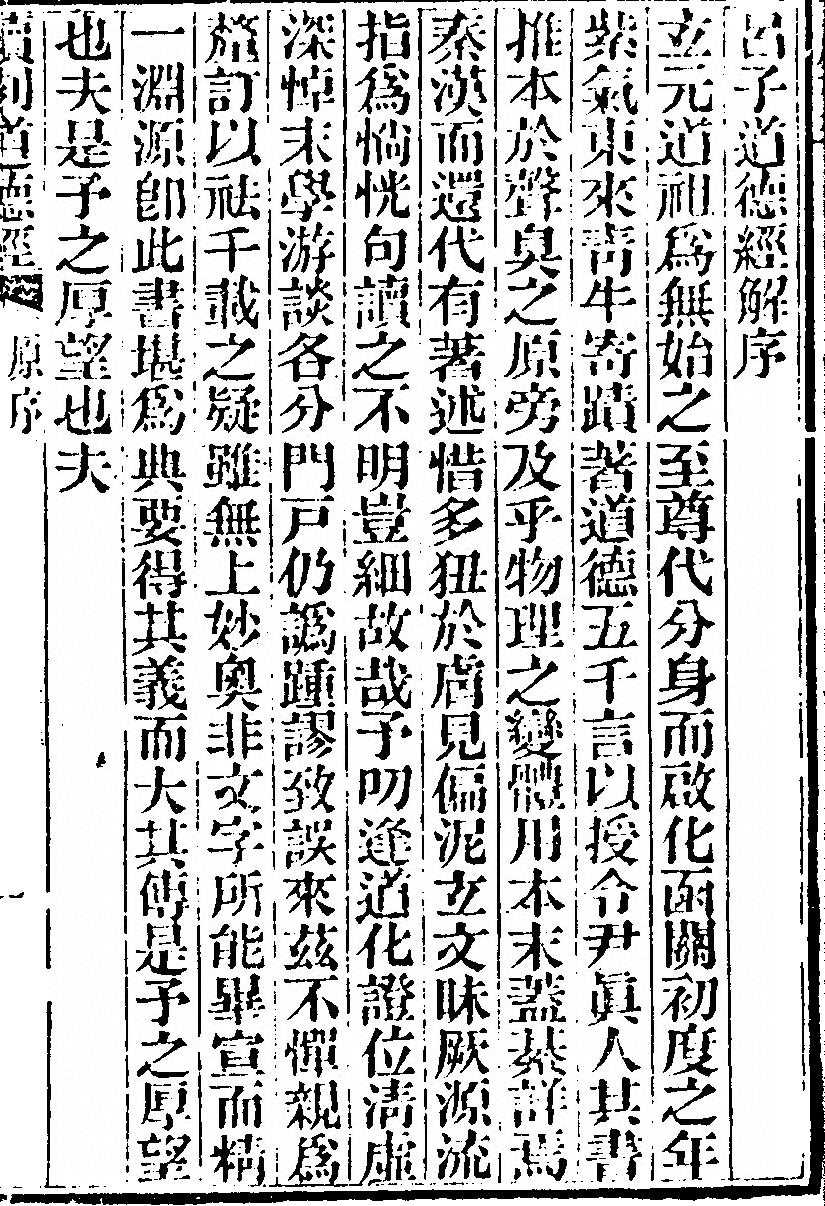 呂子道德經解序
玄元道祖爲無始之至尊代分身而啟化函關初度之年
紫氣東來靑牛寄蹟著道德五千言以授令尹眞人其書
推本於聲臭之原旁及乎物理之變體用本末蓋綦詳焉
秦漢而還代有著述惜多狃於膚見偏泥立文昧厥源流
指爲惝恍句讀之不明豈細故哉予叨逢道化證位淸虛
深悼末學游談各分門戸仍譌踵謬致誤來茲不憚親爲
箋訂以祛千載之疑雖無上妙奧非文字所能畢宣而精
一淵源卽此書堪爲典要得其義而大其傳是予之厚望
也夫是予之厚望也夫
道德經
原序
一